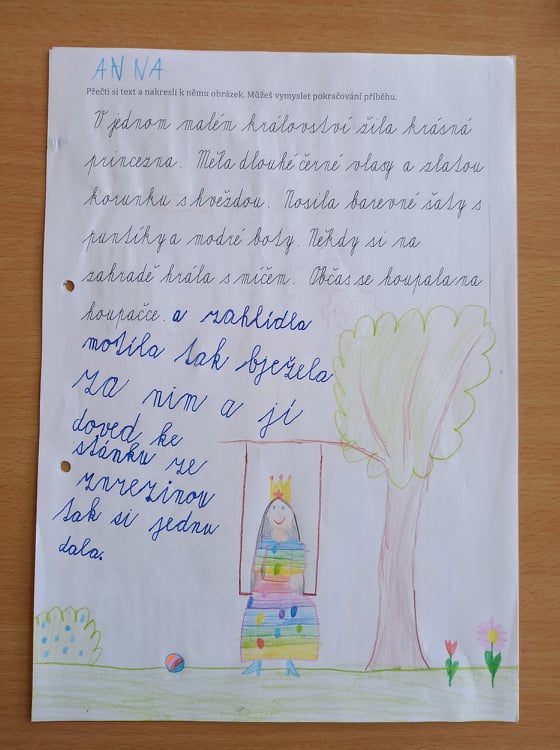 ANNA
Přečti si text a nakresli k němu obrázek. Můžeš vymyslet pokračování příběhu.
V jednom malém království žila krásná
princezna. Měla dlouhé černé vlasy a zlatou
korunku s hvězdou. Nosila barevné šaty s
puntíky a modré boty. Někdy si na
zahradě hrála s míčem. Občas se houpala na
houpačce. a zahlídla
motíla tak bježela
za nim a jí
doved ke
stánku ze
znrzinou
tak si jednu
dala.